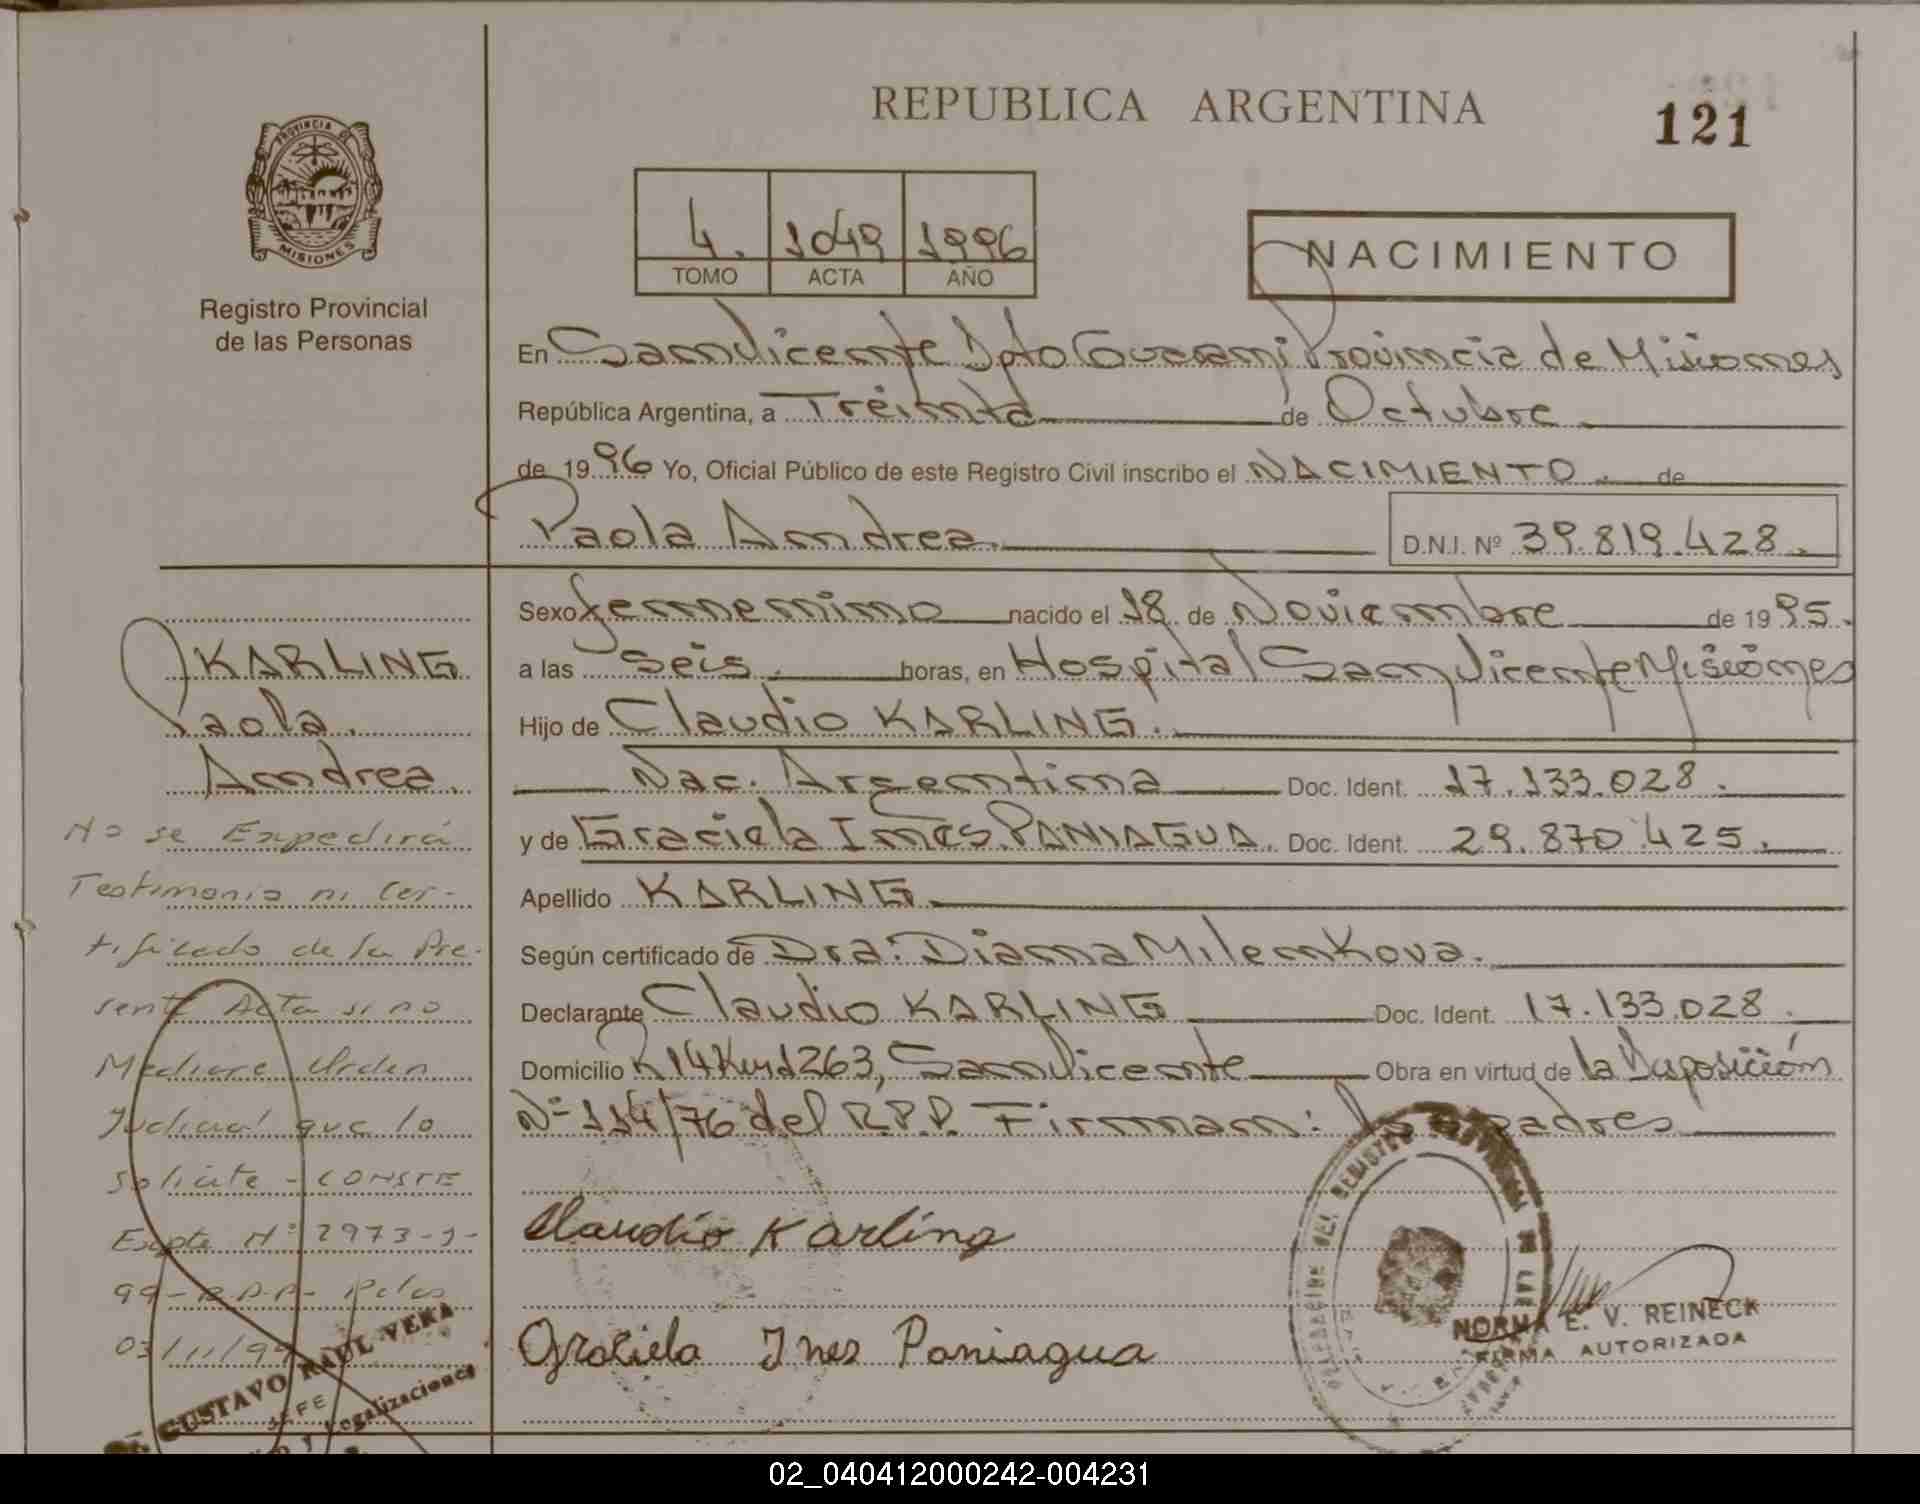 REPUBLICA ARGENTINA
121
PROVINCIA DE
MISIONES
Registro Provincial
de las Personas
4. 1049 1996
TOMO ACTA AÑO
NACIMIENTO
En San Vicente Dpto Guarani Provincia de Misiones
República Argentina, a Treinta de Octubre
de 1996 Yo, Oficial Público de este Registro Civil inscribo el NACIMIENTO. de
Paola Andrea. D.N.I. Nº 39.819.428.
Sexo femenino nacido el 18 de Noviembre de 1995.
a las seis. horas, en Hospital San Vicente Misiones
Hijo de Claudio KARLING.
Nac. Argentina Doc. Ident. 17.133.028.
y de Graciela Ines PANIAGUA. Doc. Ident. 29.870.425.
Apellido KARLING
Según certificado de Dra: Diana Milenkova.
Declarante Claudio KARLING Doc. Ident. 17.133.028.
Domicilio R 14 Km 1263, San Vicente Obra en virtud de la Disposición
Nº 114/76 del R.P.P. Firman: los padres
Claudio Karling
Graciela Ines Paniagua
NORMA E. V. REINECK
FIRMA AUTORIZADA
KARLING
Paola.
Andrea.
No se Expedirá
Testimonio ni Cer-
tificado de la Pre-
sente Acta si no
Mediare Orden
Judicial que lo
solicite - CONSTE
Expte Nº 2973-
99-R.P.P.- Pdas
03/11/99
GUSTAVO RAUL VERA
JEFE
y Legalizaciones
02_040412000242-004231